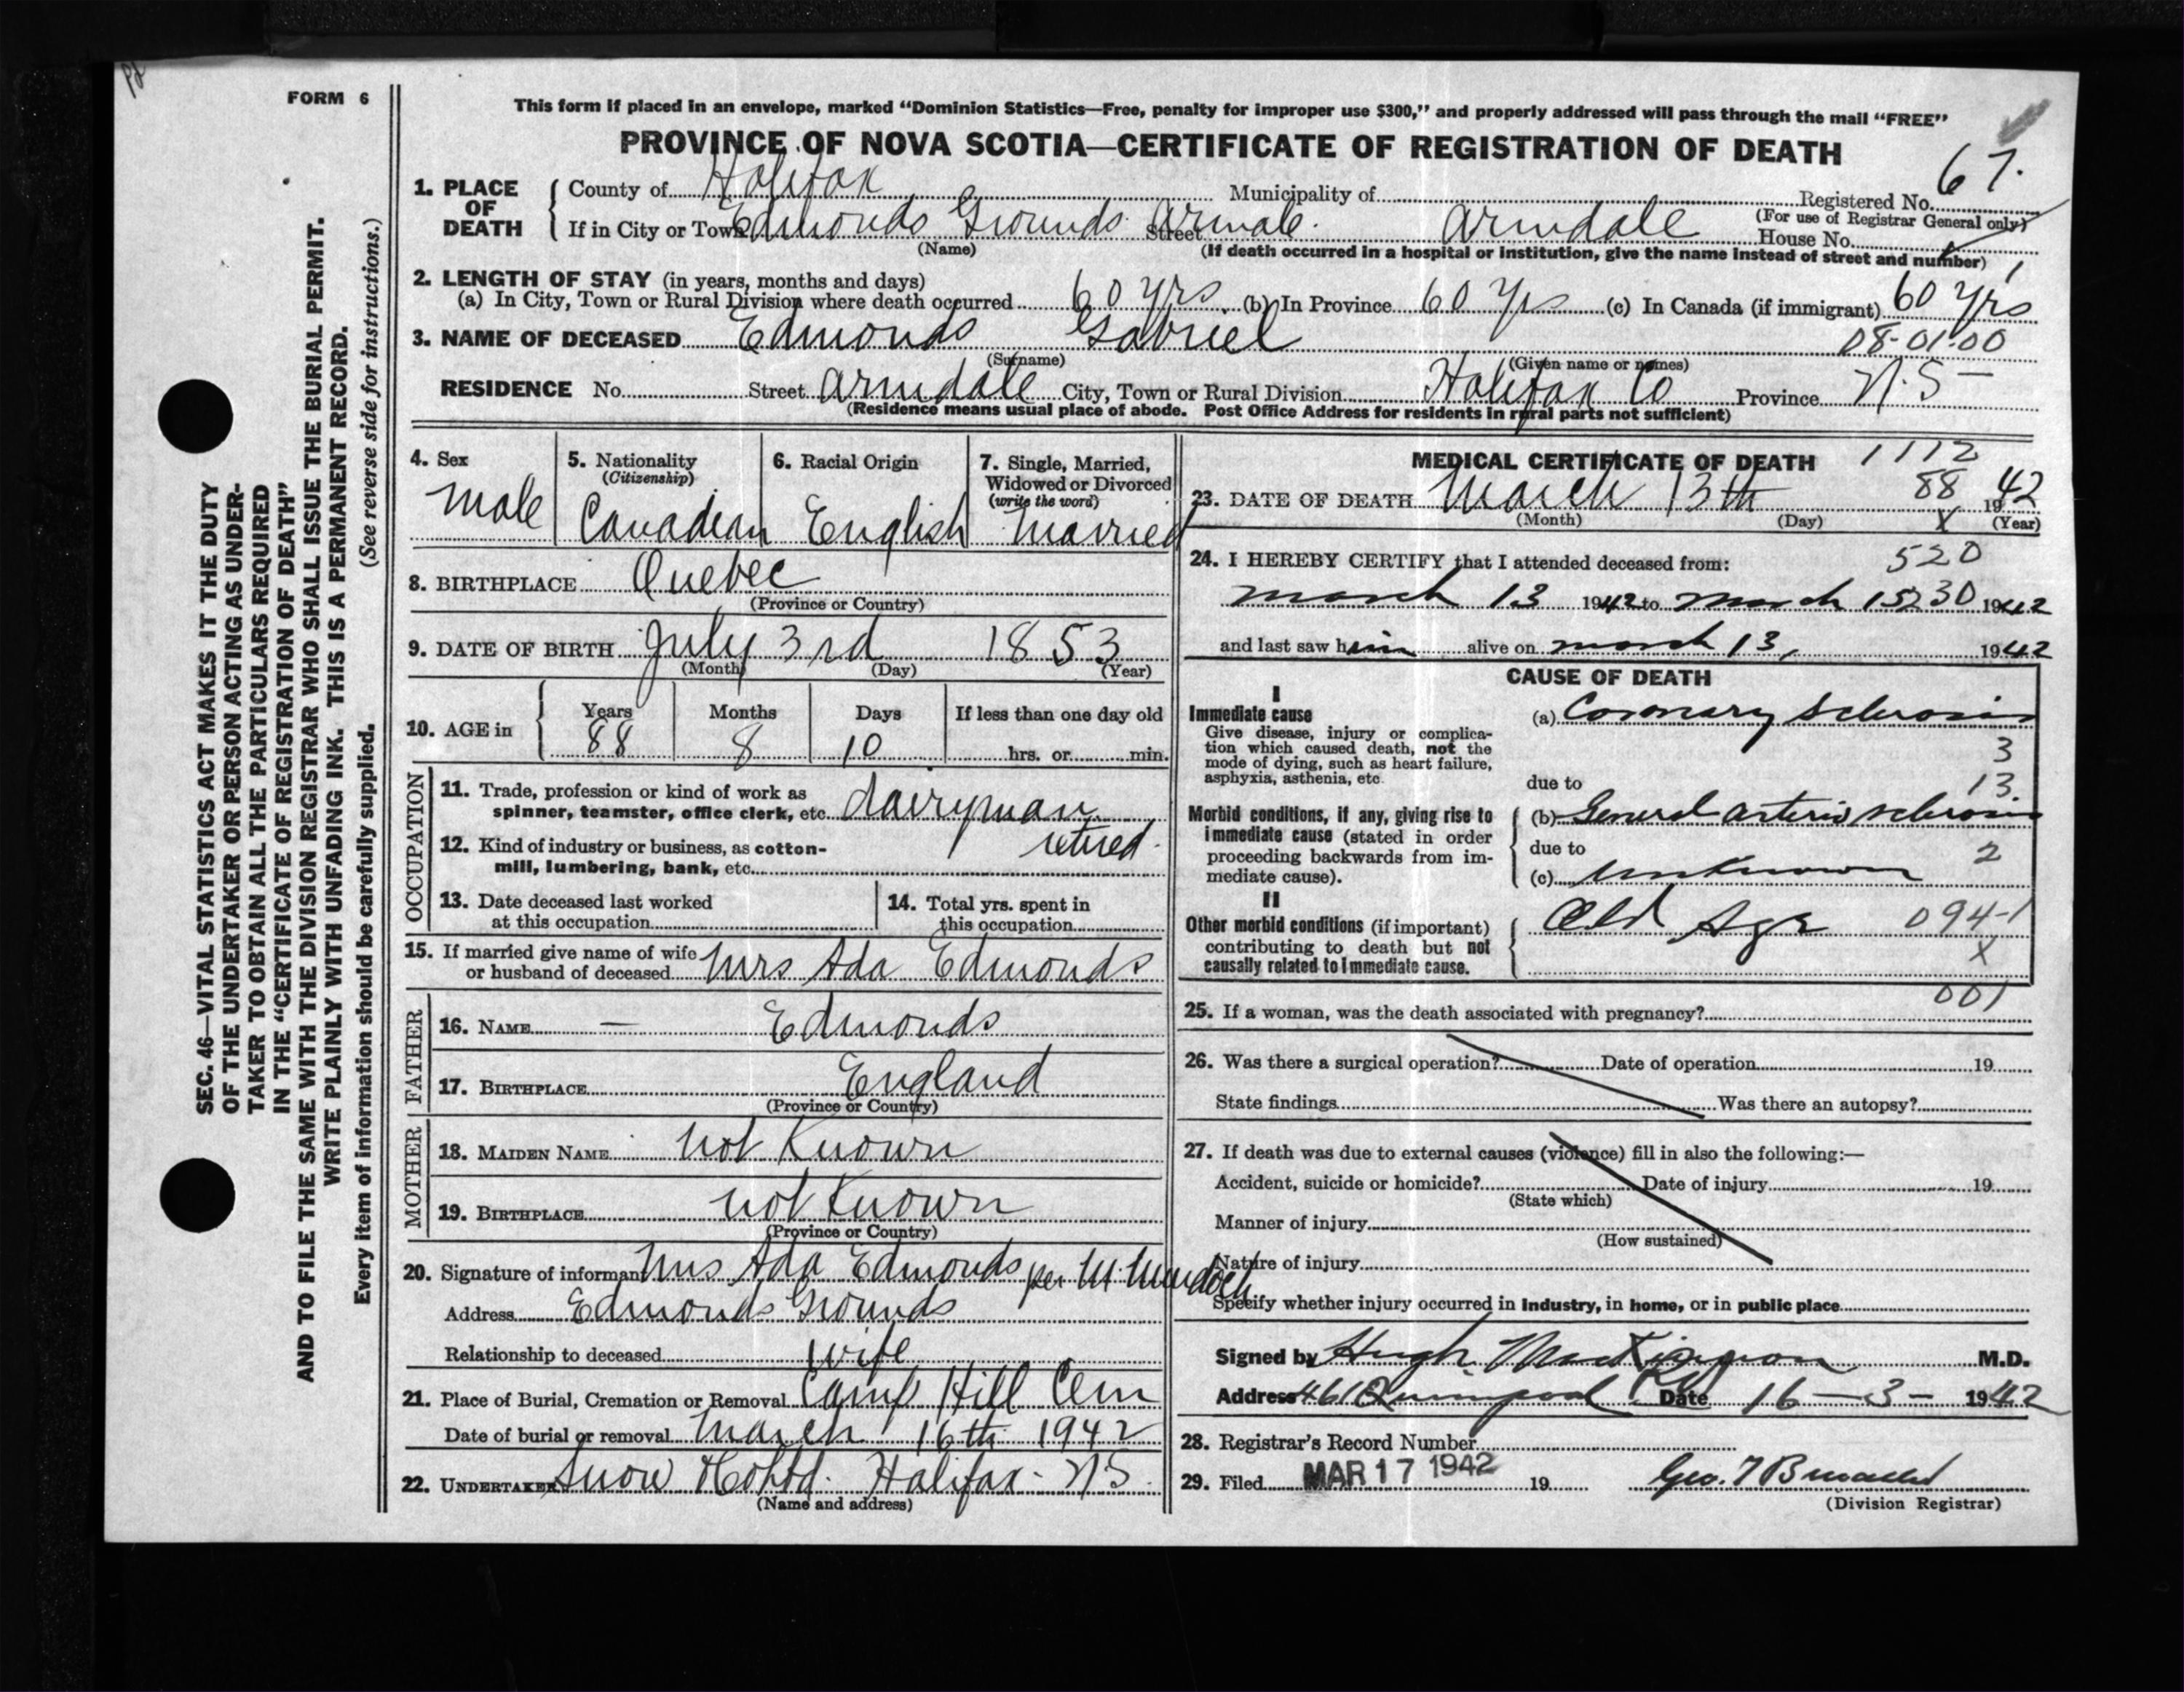 FORM 6
This form if placed in an envelope, marked “Dominion Statistics—Free, penalty for improper use $300,” and properly addressed will pass through the mail “FREE”
PROVINCE OF NOVA SCOTIA—CERTIFICATE OF REGISTRATION OF DEATH
1. PLACE OF DEATH County of Halifax Municipality of Registered No. 67.
(For use of Registrar General only)
If in City or Town Edmonds Grounds Armdale. Street Armdale House No.
(Name) (If death occurred in a hospital or institution, give the name instead of street and number)
2. LENGTH OF STAY (in years, months and days)
(a) In City, Town or Rural Division where death occurred 60 yrs (b) In Province 60 yrs (c) In Canada (if immigrant) 60 yrs
3. NAME OF DECEASED Edmonds Gabriel 08-01-00
(Surname) (Given name or names)
RESIDENCE No. Street Armdale City, Town or Rural Division Halifax Co Province N.S—
(Residence means usual place of abode. Post Office Address for residents in rural parts not sufficient)
4. Sex Male
5. Nationality (Citizenship) Canadian
6. Racial Origin English
7. Single, Married, Widowed or Divorced (write the word) Married
8. BIRTHPLACE Quebec
(Province or Country)
9. DATE OF BIRTH July 3rd 1853
(Month) (Day) (Year)
10. AGE in Years 88 Months 8 Days 10 If less than one day old hrs. or min.
OCCUPATION
11. Trade, profession or kind of work as
spinner, teamster, office clerk, etc. dairyman
retired
12. Kind of industry or business, as cotton-
mill, lumbering, bank, etc.
13. Date deceased last worked at this occupation
14. Total yrs. spent in this occupation
15. If married give name of wife
or husband of deceased Mrs Ada Edmonds
FATHER
16. NAME — Edmonds
17. BIRTHPLACE England
(Province or Country)
MOTHER
18. MAIDEN NAME not Known
19. BIRTHPLACE not Known
(Province or Country)
20. Signature of informant Mrs Ada Edmonds per M Murdoch
Address Edmonds Grounds
Relationship to deceased wife
21. Place of Burial, Cremation or Removal Camp Hill Cem
Date of burial or removal March 16th 1942
22. UNDERTAKER Snow Halifax. N S.
(Name and address)
MEDICAL CERTIFICATE OF DEATH 1112
88
23. DATE OF DEATH March 13th 1942
(Month) (Day) X (Year)
24. I HEREBY CERTIFY that I attended deceased from: 520
March 13 1942 to March 1942
and last saw him alive on March 13, 1942
CAUSE OF DEATH
I
Immediate cause (a) Coronary Sclerosis
Give disease, injury or complica-
tion which caused death, not the
mode of dying, such as heart failure,
asphyxia, asthenia, etc. 3
due to 13
Morbid conditions, if any, giving rise to (b) General arterio sclerosis
immediate cause (stated in order
proceeding backwards from im-
mediate cause). due to 2
(c) Unknown
II
Other morbid conditions (if important) Old Age 094-1
contributing to death but not X
causally related to immediate cause.
001
25. If a woman, was the death associated with pregnancy?
26. Was there a surgical operation? Date of operation 19
State findings Was there an autopsy?
27. If death was due to external causes (violence) fill in also the following:—
Accident, suicide or homicide? Date of injury 19
(State which)
Manner of injury
(How sustained)
Nature of injury
Specify whether injury occurred in industry, in home, or in public place
Signed by Hugh MacKinnon M.D.
Address 461 Quinpool Rd Date 16—3— 1942
28. Registrar's Record Number
29. Filed MAR 17 1942 19 Geo. T
(Division Registrar)
SEC. 46—VITAL STATISTICS ACT MAKES IT THE DUTY
OF THE UNDERTAKER OR PERSON ACTING AS UNDER-
TAKER TO OBTAIN ALL THE PARTICULARS REQUIRED
IN THE “CERTIFICATE OF REGISTRATION OF DEATH”
AND TO FILE THE SAME WITH THE DIVISION REGISTRAR WHO SHALL ISSUE THE BURIAL PERMIT.
WRITE PLAINLY WITH UNFADING INK. THIS IS A PERMANENT RECORD.
Every item of information should be carefully supplied. (See reverse side for instructions.)